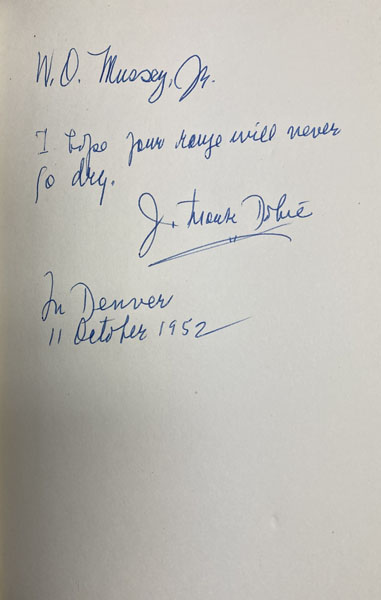 W. O. Mussey, Jr.
I hope your range will never
go dry.
J. Frank Dobie
In Denver
11 October 1952